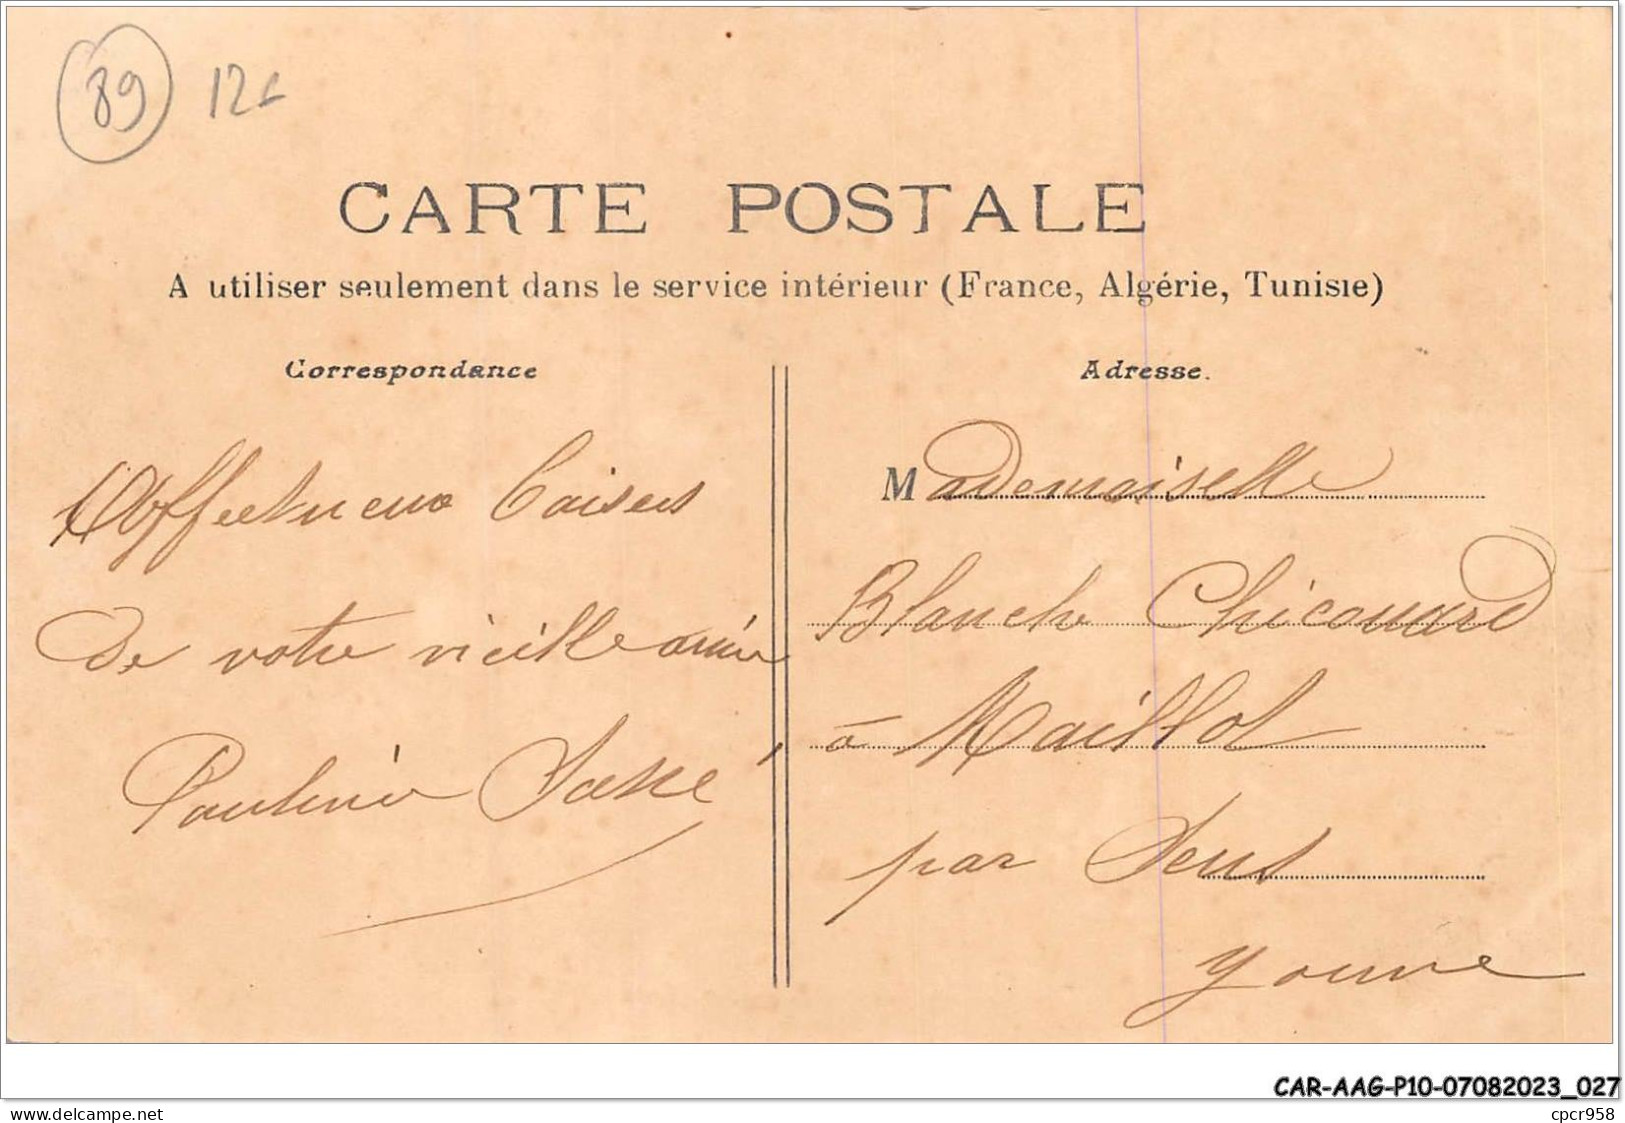 89 12€
CARTE POSTALE
A utiliser seulement dans le service intérieur (France, Algérie, Tunisie)
Correspondance
Affectueux baisers
de votre vieille amie
Pauline
Adresse.
Mademoiselle
Blanche Chicouard
à Maillot
par Sens
Yonne
CAR-AAG-P10-07082023_027
www.delcampe.net
cpcr958